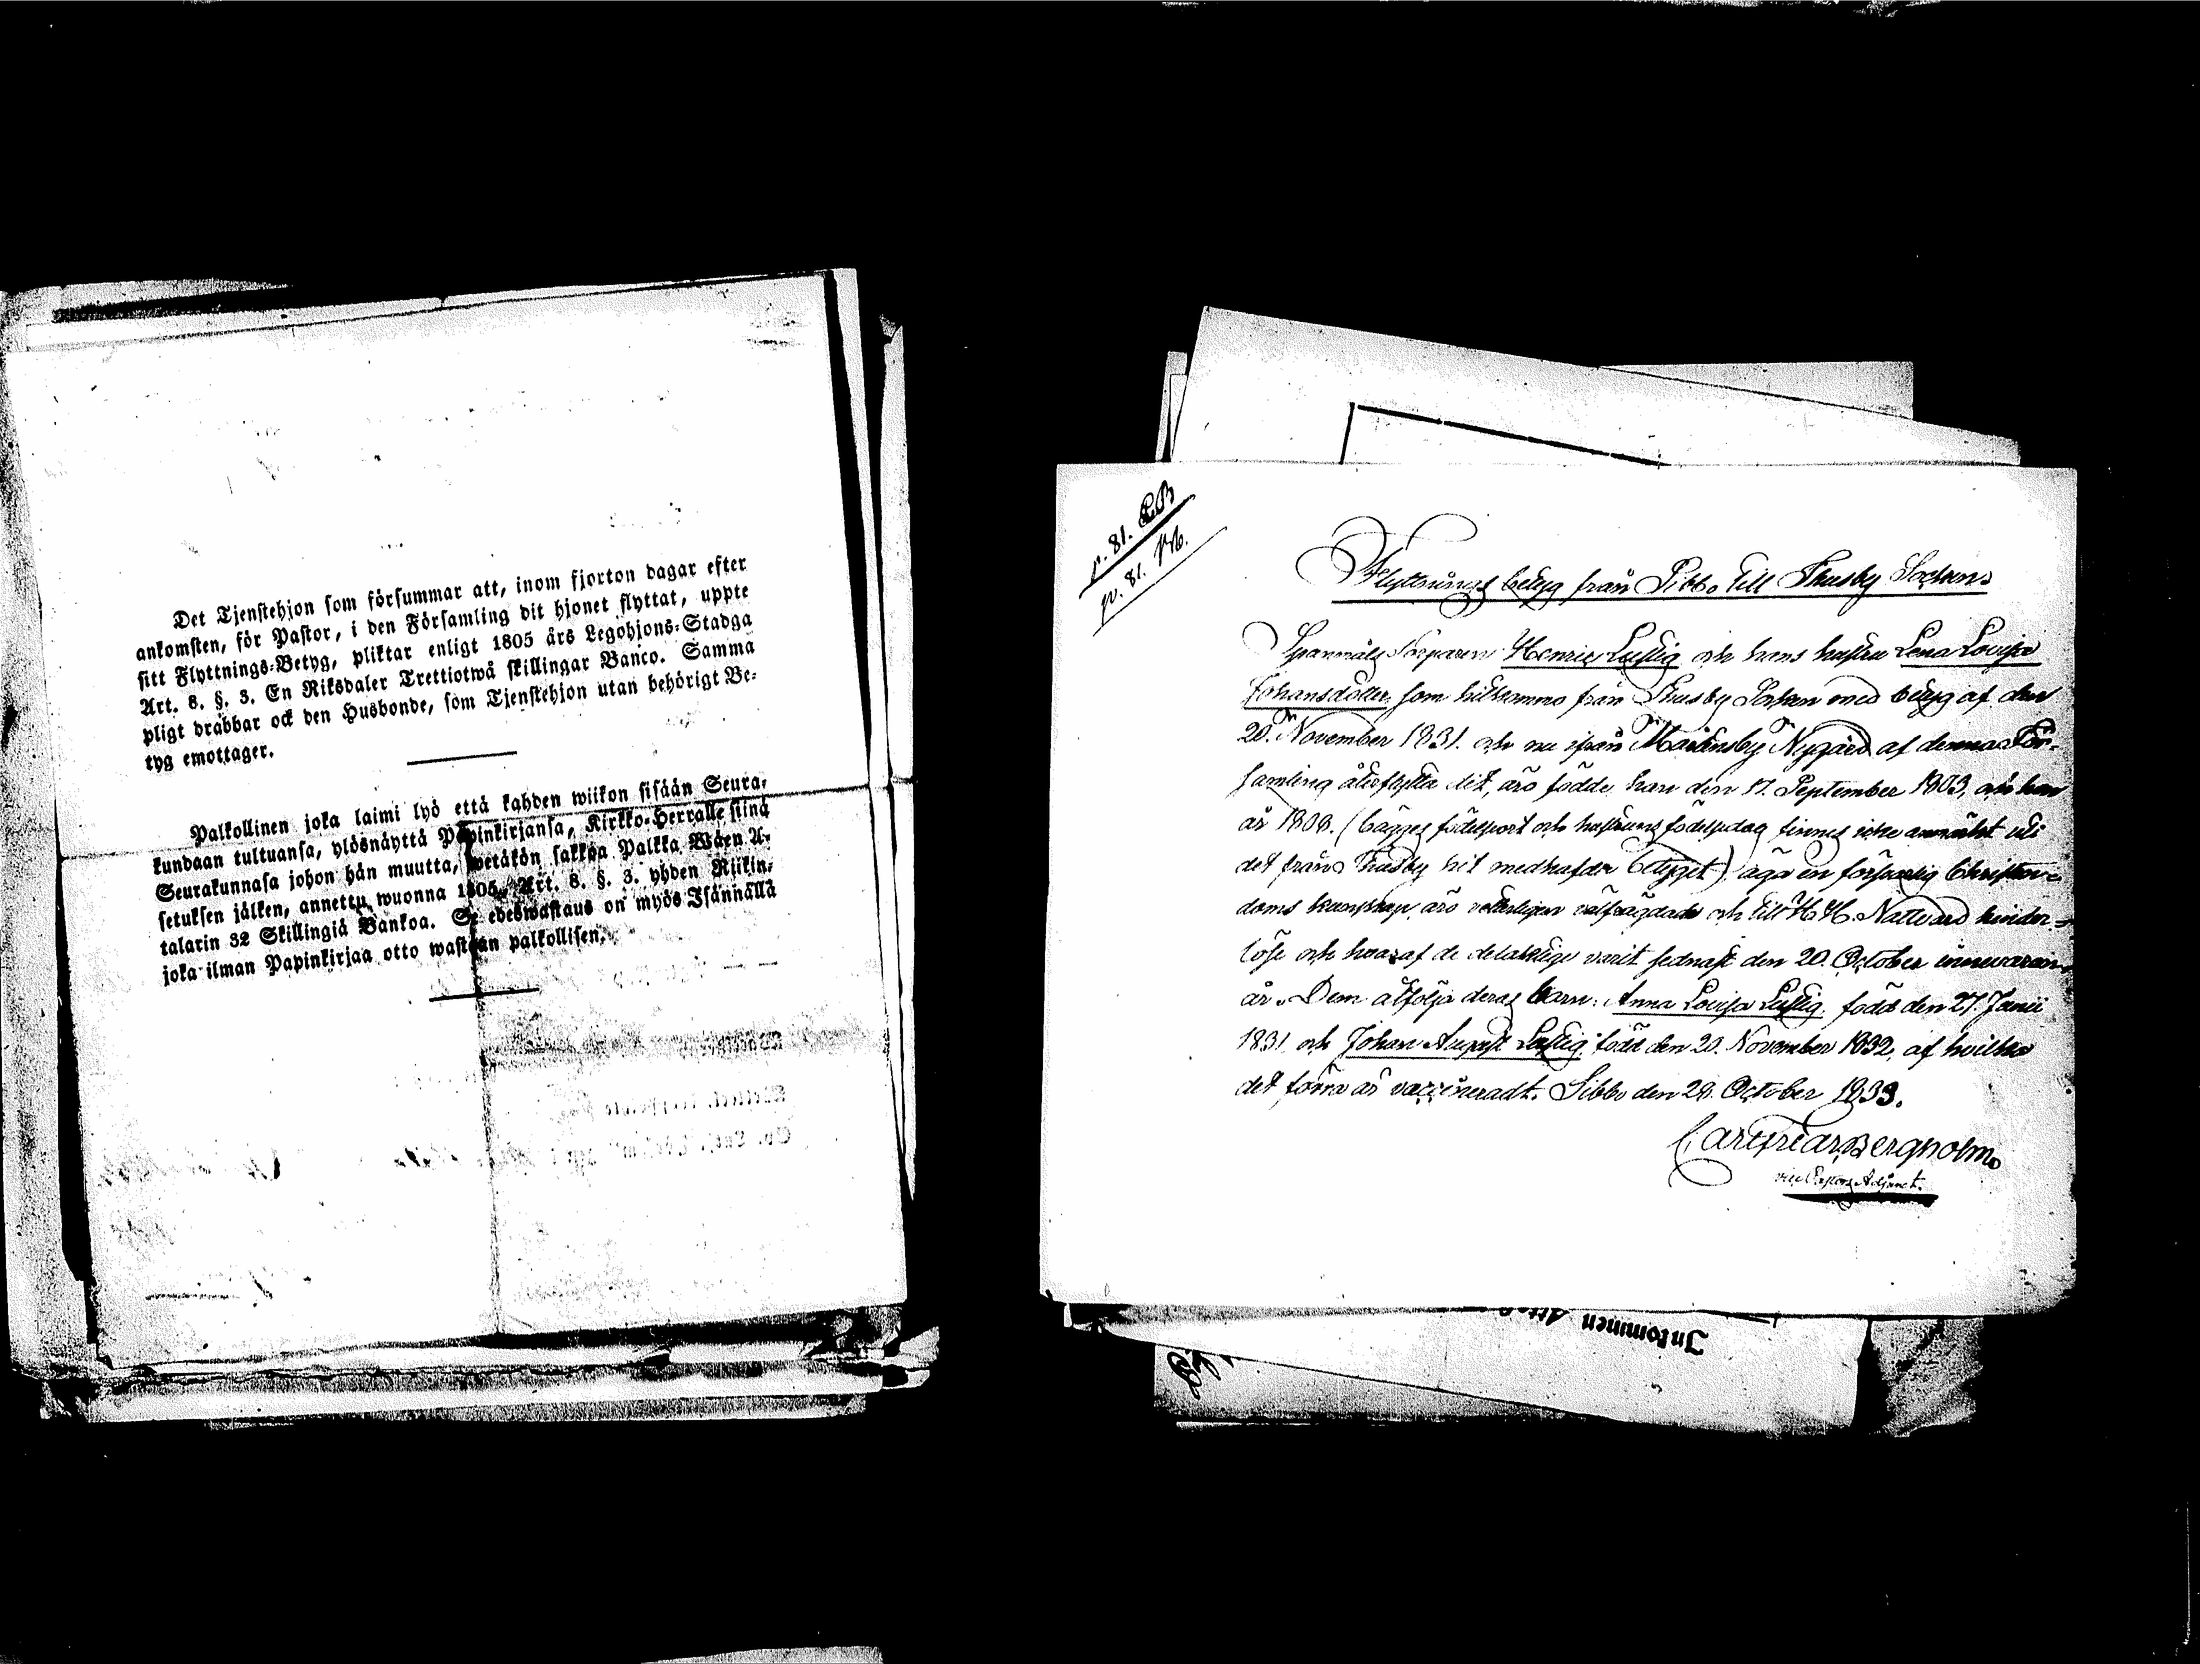 Det Tjenstehjon som försummar att, inom fjorton dagar efter
ankomsten, för Pastor, i den Församling dit hjonet flyttat, uppte
sitt Flyttnings-Betyg, pliktar enligt 1805 års Legohjons-Stadga
Art. 8. §. 3. En Riksdaler Trettiotwå skillingar Banco. Samma
pligt drabbar ock den Husbonde, som Tjenstehjon utan behörigt Be-
tyg emottager.
Palkollinen joka laimi lyö että kahden wiikon sisään Seura-
kundaan tultuansa, ylösnäyttä Papinkirjansa, Kirkko-Herralle siinä
Seurakunnasa johon hän muutta, wetäkön sakkoa Palkka Wäen A-
setuksen jälken, annettu wuonna 1805 Art. 8. §. 3. yhden Riikin-
talarin 32 Skillingiä Bankoa. Se edeswastaus on myös Isännällä
joka ilman Papinkirjaa otto wastaan palkollisen.
p. 81.
pv. 81.
Flyttnings betyg från Sibbo till Thusby Sochen.
Henric Lustig och hans hustru Lena Lovisa
Johansdotter, som hitkommo från Thusby Sochen med betyg af den
20. November 1831. och nu ifrån Mårtensby Nygård af denna För-
samling återflytta dit, äro födde, han den 17. September 1803, och hon
år 1808. (bägges födelseort och hustruns födelsedag finnes icke anmält uti
det från Thusby hit medhafda betyget) äga en försvarlig Christen-
doms kunskap, äro välfrägdade och till H. H. Nattvard hinder-
löse och hvaraf de delaktige varit sednast den 20. October innevarande
år. Dem åtfölja deras barn: Anna Lovisa Lustig, född den 27. Junii
1831 och Johan August Lustig född den 20. November 1832, af hvilka
det förra är vaccineradt. Sibbo den 29. October 1833.
Bergholm
Adjunct.
Inkommen